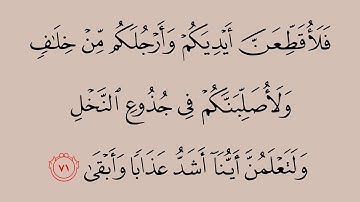 فَلَأُقَطِّعَنَّ أَيْدِيَكُمْ وَأَرْجُلَكُم مِّنْ خِلَٰفٍ
وَلَأُصَلِّبَنَّكُمْ فِى جُذُوعِ ٱلنَّخْلِ
وَلَتَعْلَمُنَّ أَيُّنَآ أَشَدُّ عَذَابًا وَأَبْقَىٰ ٧١